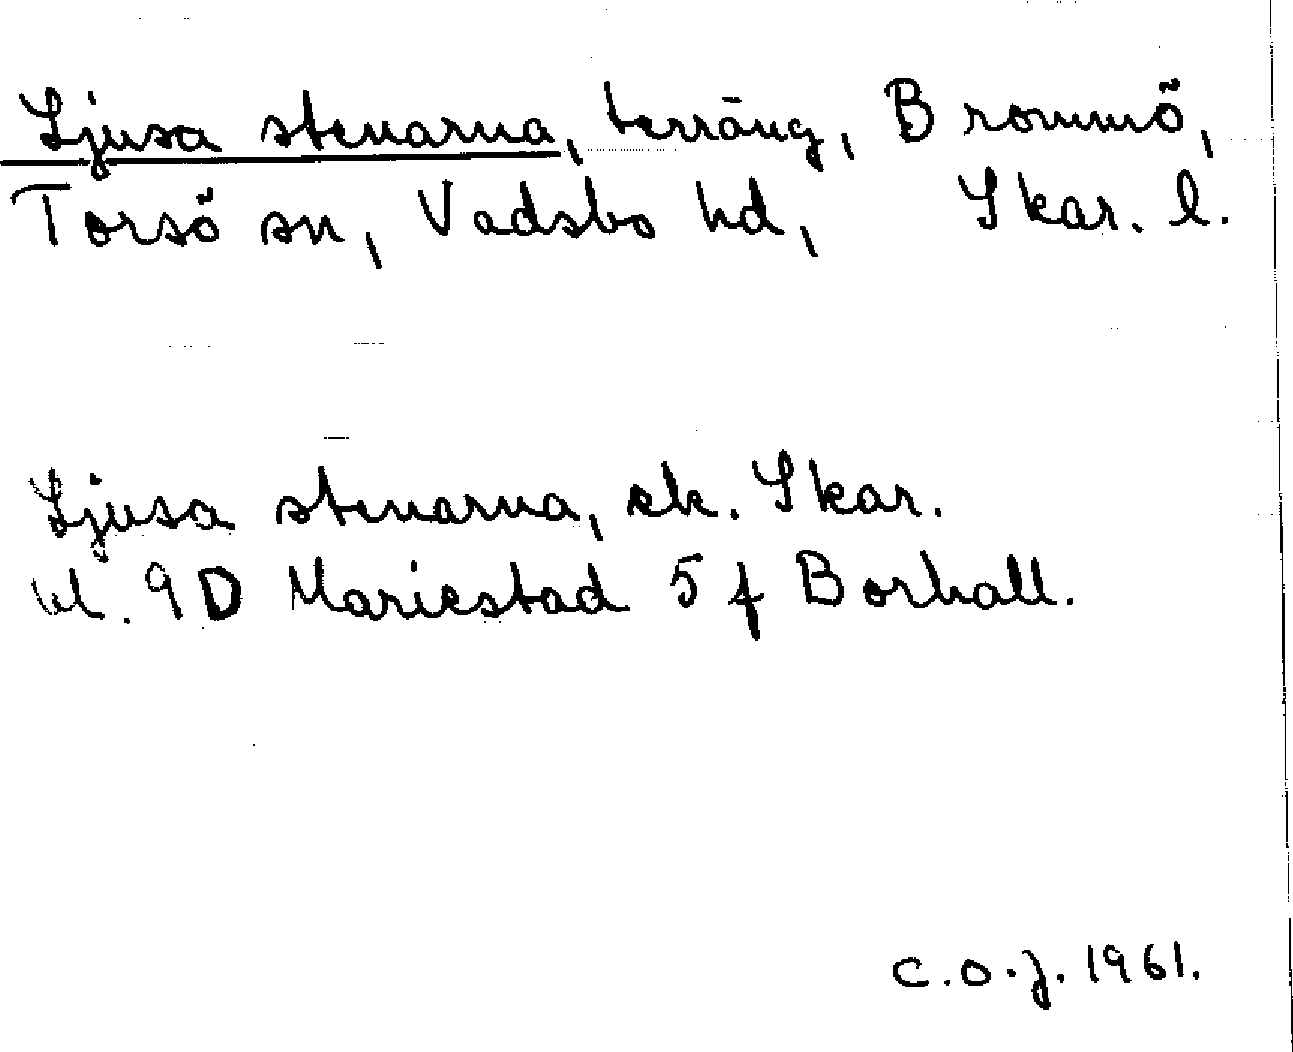 Ljusa stenarna, terräng, Brommö,
Torsö sn, Vadsbo hd, Skar. l.
Ljusa stenarna, ek. Skar.
bl. 9D Mariestad 5 f Borhall.
C.O.J. 1961.